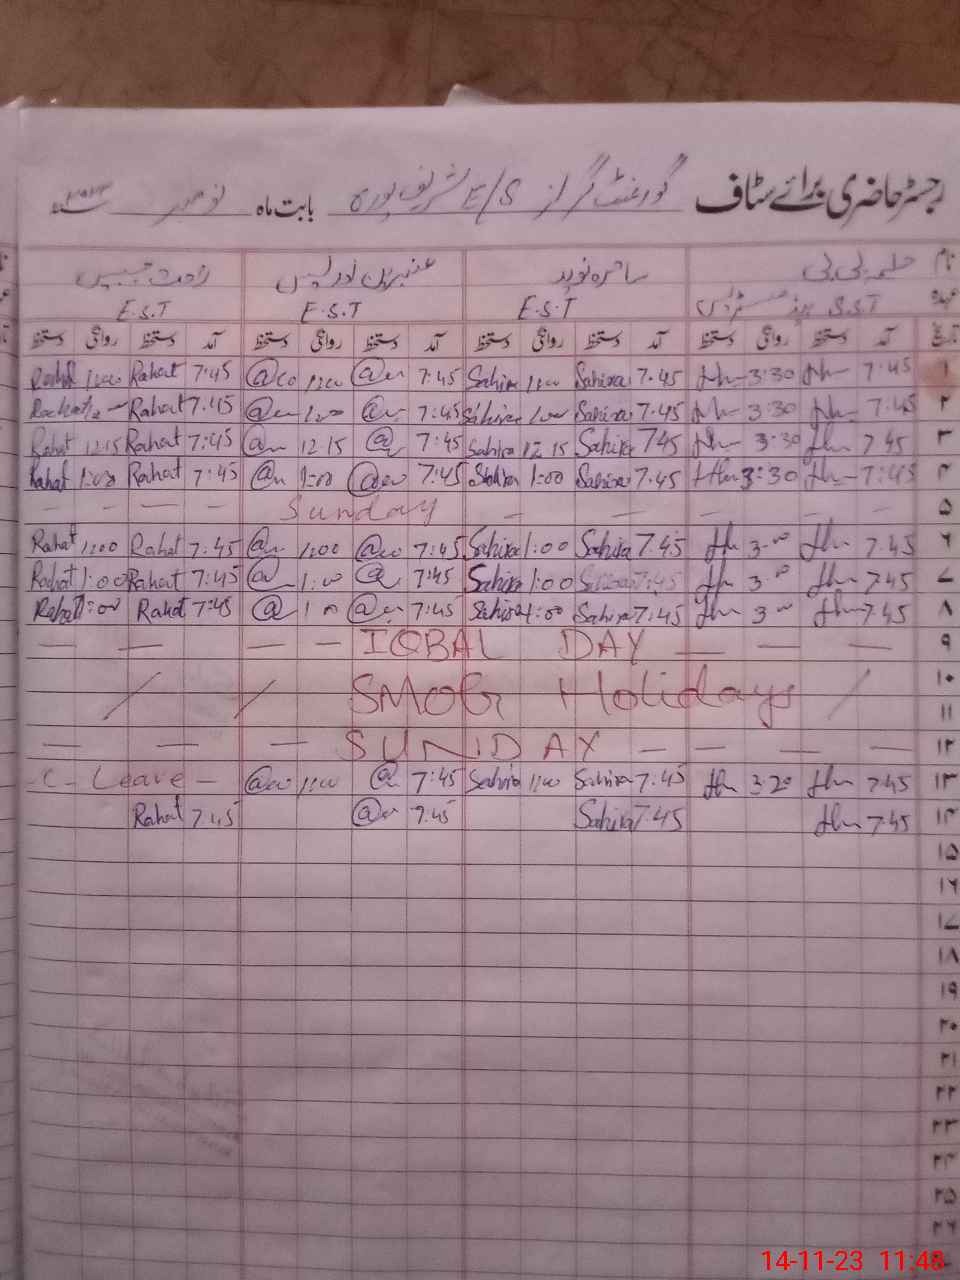 رجسٹر حاضری برائے سٹاف گورنمنٹ گرلز E/S شریف پورہ بابت ماہ نومبر
نام حلیمہ بی بی سائرہ نوید عنبرین راحت جبیں
عہدہ S.S.T ہیڈ مسٹریس E.S.T E.S.T E.S.T
تاریخ آمد دستخط روانگی دستخط آمد دستخط روانگی دستخط آمد دستخط روانگی دستخط آمد دستخط روانگی دستخط
Rahat 1:00 Rahat 7:45 1:00 7:45 Sahira 1:00 Sahira 7.45 3:30 7:45 ۱
Rahat Rahat 7:45 1:00 7:45 Sahira 1:00 Sahira 7.45 3:30 7:45 ۲
Rahat 12:15 Rahat 7:45 12 15 7:45 Sahira 12.15 Sahira 7.45 3:30 7.45 ۳
Rahat 1:00 Rahat 7:45 1:00 7.45 Sahira 1:00 Sahira 7.45 3:30 7:45 ۴
— — — — Sunday — — — — ۵
Rahat 1:00 Rahat 7:45 1:00 7:45 Sahira 1:00 Sahira 7.45 3.00 7.45 ۶
Rahat 1:00 Rahat 7:45 1:00 7:45 Sahira 1:00 Sahira 7:45 3.00 7.45 ۷
Rahat 1:00 Rahat 7:45 1:00 7:45 Sahira 1:00 Sahira 7.45 3.00 7.45 ۸
— — — — IQBAL DAY — — — ۹
/ / SMOG Holidays / ۱۰
۱۱
— — — SUNDAY — — — — ۱۲
C - Leave - 1:00 7:45 Sahira 1:00 Sahira 7.45 3.20 7.45 ۱۳
Rahat 7:45 7:45 Sahira 7.45 7.45 ۱۴
۱۵
۱۶
۱۷
۱۸
۱۹
۲۰
۲۱
۲۲
۲۳
۲۴
۲۵
۲۶
14-11-23 11:48